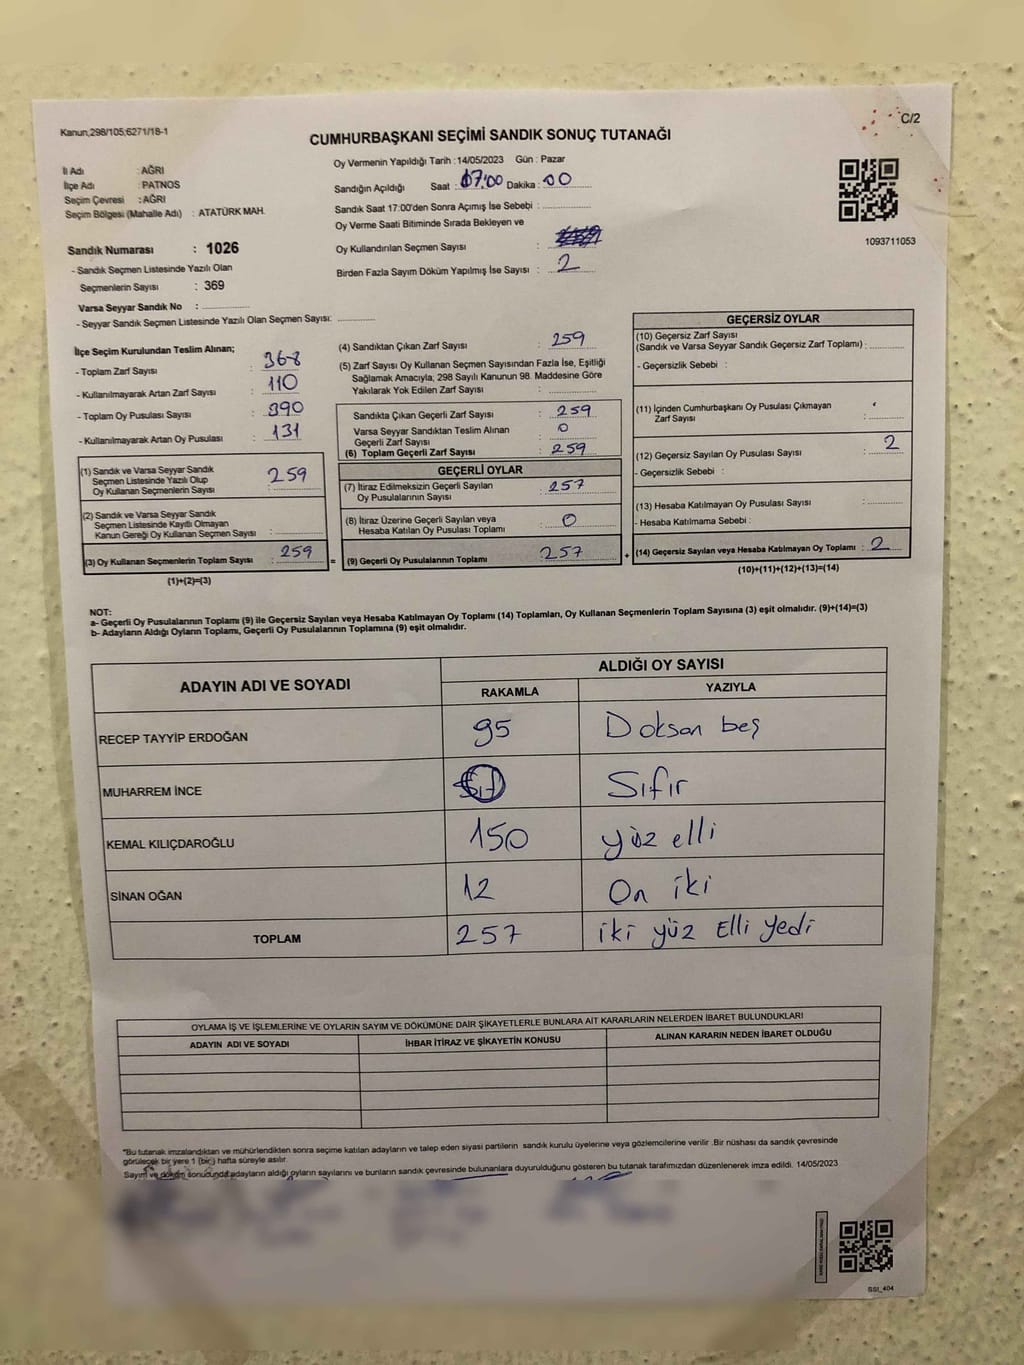 Kanun;298/105;6271/18-1
C/2
CUMHURBAŞKANI SEÇİMİ SANDIK SONUÇ TUTANAĞI
İl Adı : AĞRI
İlçe Adı : PATNOS
Seçim Çevresi : AĞRI
Seçim Bölgesi (Mahalle Adı) : ATATÜRK MAH.
Oy Vermenin Yapıldığı Tarih : 14/05/2023 Gün : Pazar
Sandığın Açıldığı Saat : 07:00 Dakika : 00
Sandık Saat 17:00'den Sonra Açımış İse Sebebi :
Oy Verme Saati Bitiminde Sırada Bekleyen ve
Oy Kullandırılan Seçmen Sayısı :
Birden Fazla Sayım Döküm Yapılmış İse Sayısı : 2
1093711053
Sandık Numarası : 1026
- Sandık Seçmen Listesinde Yazılı Olan
Seçmenlerin Sayısı : 369
Varsa Seyyar Sandık No :
- Seyyar Sandık Seçmen Listesinde Yazılı Olan Seçmen Sayısı:
İlçe Seçim Kurulundan Teslim Alınan;
- Toplam Zarf Sayısı : 368
- Kullanılmayarak Artan Zarf Sayısı : 110
- Toplam Oy Pusulası Sayısı : 390
- Kullanılmayarak Artan Oy Pusulası : 131
(1) Sandık ve Varsa Seyyar Sandık
Seçmen Listesinde Yazılı Olup
Oy Kullanan Seçmenlerin Sayısı : 259
(2) Sandık ve Varsa Seyyar Sandık
Seçmen Listesinde Kayıtlı Olmayan
Kanun Gereği Oy Kullanan Seçmen Sayısı :
(3) Oy Kullanan Seçmenlerin Toplam Sayısı : 259
(1)+(2)=(3)
(4) Sandıktan Çıkan Zarf Sayısı : 259
(5) Zarf Sayısı Oy Kullanan Seçmen Sayısından Fazla İse, Eşitliği
Sağlamak Amacıyla, 298 Sayılı Kanunun 98. Maddesine Göre
Yakılarak Yok Edilen Zarf Sayısı :
Sandıkta Çıkan Geçerli Zarf Sayısı : 259
Varsa Seyyar Sandıktan Teslim Alınan
Geçerli Zarf Sayısı : 0
(6) Toplam Geçerli Zarf Sayısı : 259
GEÇERLİ OYLAR
(7) İtiraz Edilmeksizin Geçerli Sayılan
Oy Pusulalarının Sayısı : 257
(8) İtiraz Üzerine Geçerli Sayılan veya
Hesaba Katılan Oy Pusulası Toplamı : 0
= (9) Geçerli Oy Pusulalarının Toplamı : 257
GEÇERSİZ OYLAR
(10) Geçersiz Zarf Sayısı
(Sandık ve Varsa Seyyar Sandık Geçersiz Zarf Toplamı) :
- Geçersizlik Sebebi :
(11) İçinden Cumhurbaşkanı Oy Pusulası Çıkmayan
Zarf Sayısı :
(12) Geçersiz Sayılan Oy Pusulası Sayısı : 2
- Geçersizlik Sebebi :
(13) Hesaba Katılmayan Oy Pusulası Sayısı :
- Hesaba Katılmama Sebebi :
+ (14) Geçersiz Sayılan veya Hesaba Katılmayan Oy Toplamı : 2
(10)+(11)+(12)+(13)=(14)
NOT:
a- Geçerli Oy Pusulalarının Toplamı (9) ile Geçersiz Sayılan veya Hesaba Katılmayan Oy Toplamı (14) Toplamları, Oy Kullanan Seçmenlerin Toplam Sayısına (3) eşit olmalıdır. (9)+(14)=(3)
b- Adayların Aldığı Oyların Toplamı, Geçerli Oy Pusulalarının Toplamına (9) eşit olmalıdır.
ADAYIN ADI VE SOYADI
ALDIĞI OY SAYISI
RAKAMLA YAZIYLA
RECEP TAYYİP ERDOĞAN 95 Doksan beş
MUHARREM İNCE Sıfır
KEMAL KILIÇDAROĞLU 150 yüz elli
SİNAN OĞAN 12 On iki
TOPLAM 257 iki yüz Elli Yedi
OYLAMA İŞ VE İŞLEMLERİNE VE OYLARIN SAYIM VE DÖKÜMÜNE DAİR ŞİKAYETLERLE BUNLARA AİT KARARLARIN NELERDEN İBARET BULUNDUKLARI
ADAYIN ADI VE SOYADI İHBAR İTİRAZ VE ŞİKAYETİN KONUSU ALINAN KARARIN NEDEN İBARET OLDUĞU
"Bu tutanak imzalandıktan ve mühürlendikten sonra seçime katılan adayların ve talep eden siyasi partilerin sandık kurulu üyelerine veya gözlemcilerine verilir .Bir nüshası da sandık çevresinde
görülecek bir yere 1 (bir) hafta süreyle asılır.
Sayım ve döküm sonucunda adayların aldığı oyların sayılarını ve bunların sandık çevresinde bulunanlara duyurulduğunu gösteren bu tutanak tarafımızdan düzenlenerek imza edildi. 14/05/2023
SSI_404